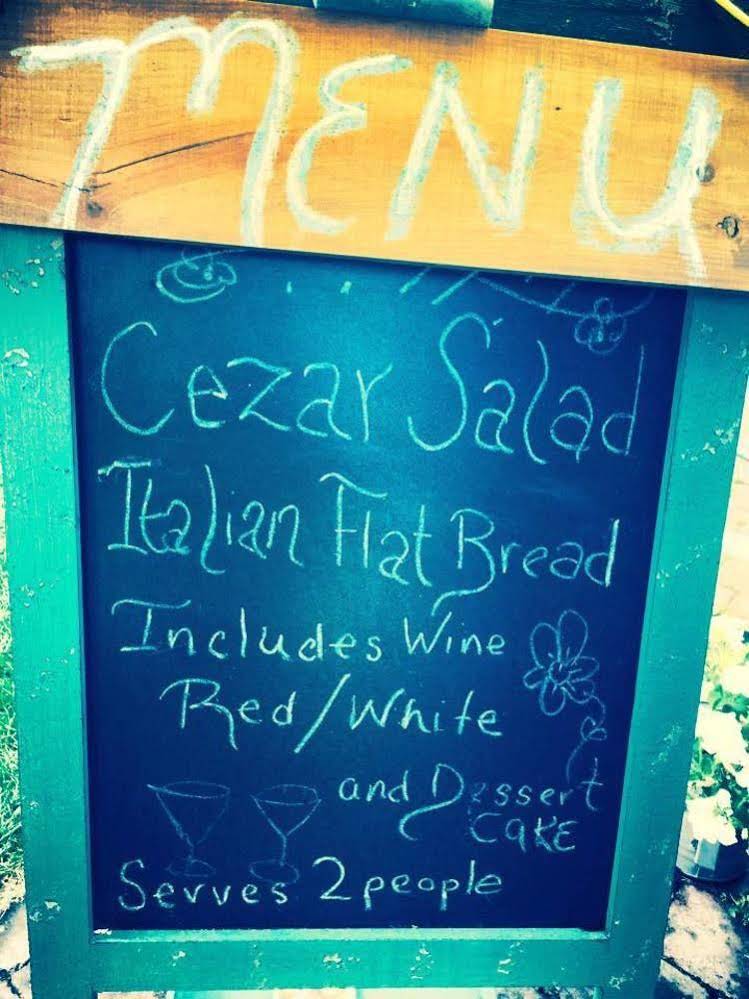 MENU
Cezar Salad
Italian Flat Bread
Includes Wine
Red/White
and Dessert
CAKE
Serves 2 people